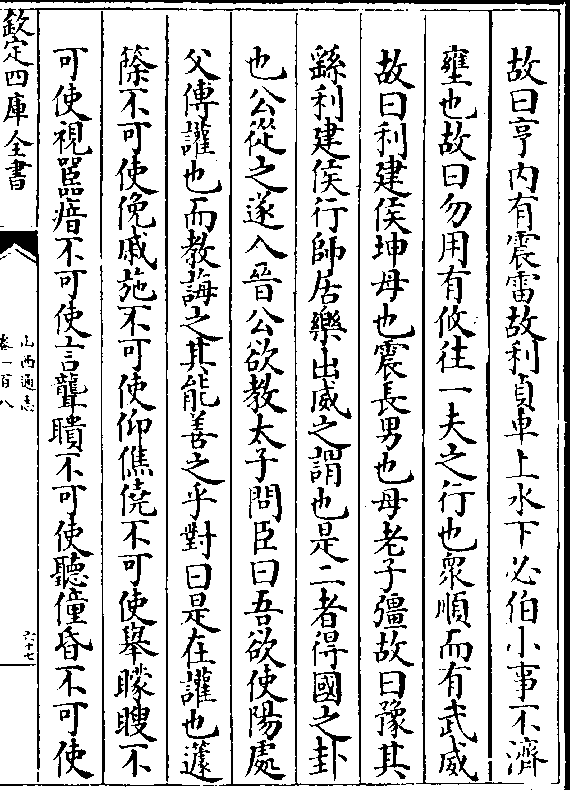 故曰亨内有震雷故利貞車上水下必伯小事不濟
壅也故曰勿用有攸往一夫之行也衆順而有武威
故曰利建侯坤母也震長男也母老子彊故曰豫其
繇利建侯行師居樂出威之謂也是二者得國之卦
也公從之遂入晉公欲教太子問臣曰吾欲使陽處
父傅讙也而教誨之其能善之乎對曰是在讙也蘧
蒢不可使俛戚施不可使仰僬僥不可使舉矇瞍不
可使視嚚瘖不可使言聾聵不可使聽僮昏不可使
欽定四庫全書
山西通志
卷一百八
六十七